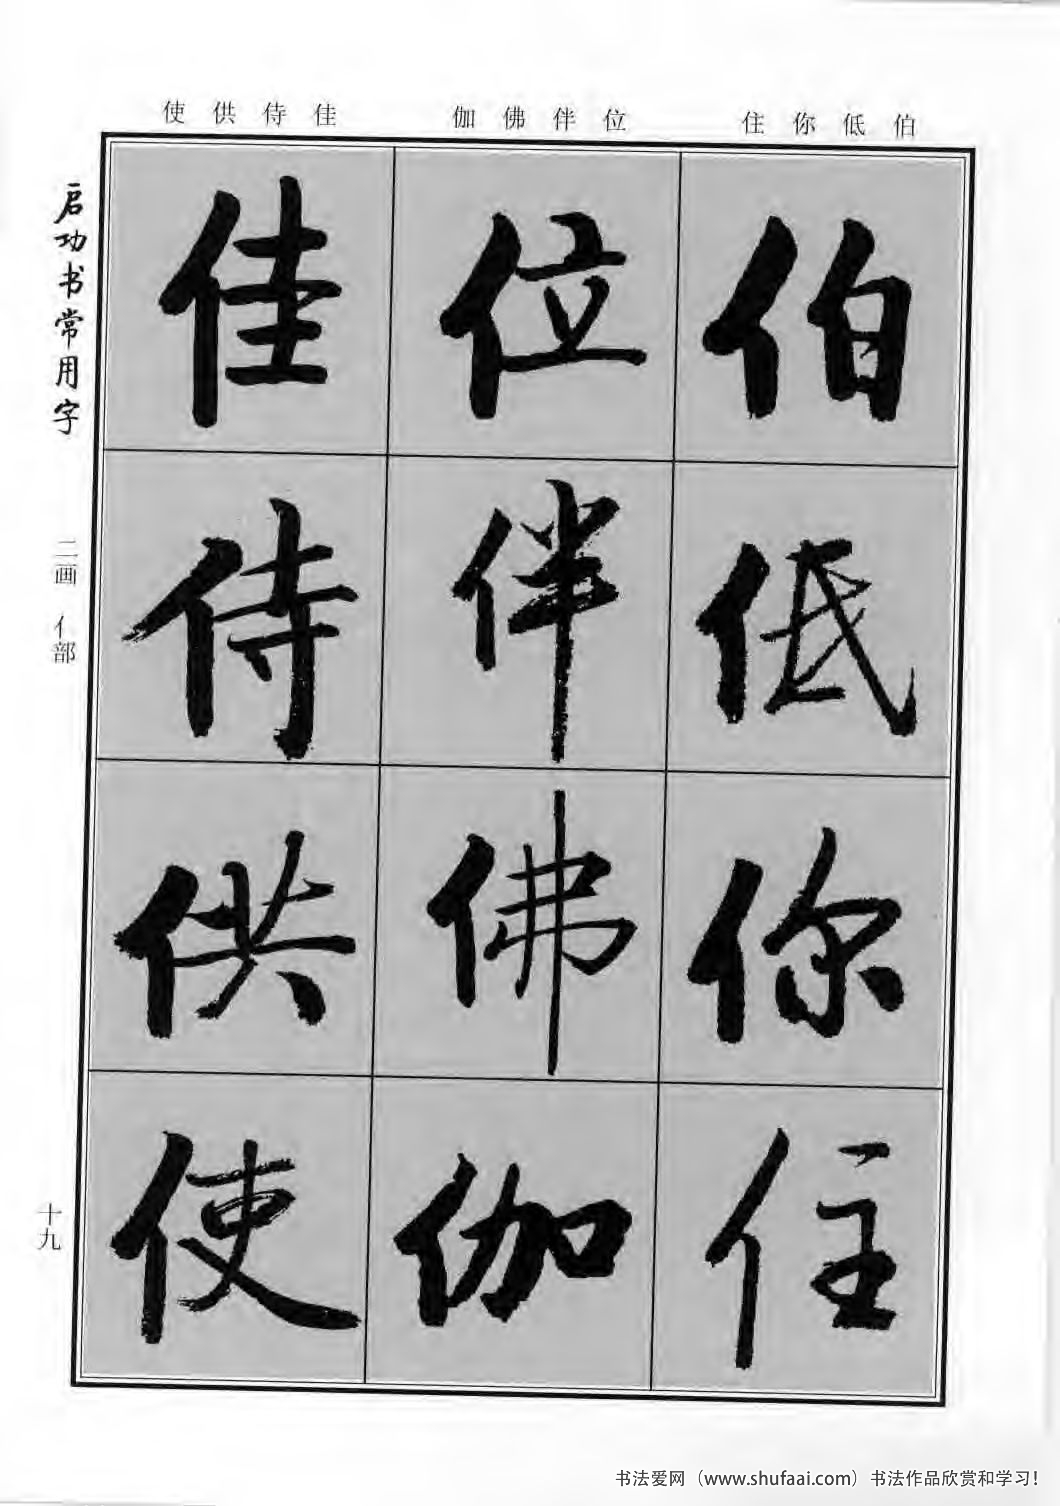 使供侍佳
伽佛伴位
住你低伯
启功书常用字
二画 亻部
十九
伯低你住
位伴佛伽
佳侍供使
书法爱网（www.shufaai.com）书法作品欣赏和学习！